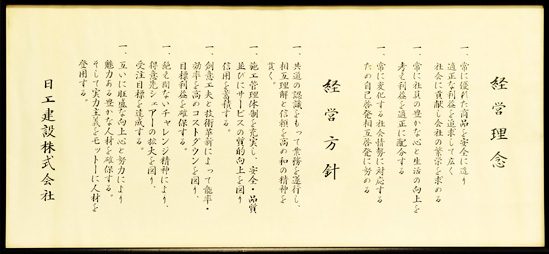 経営理念
一、常に優れた商品を安全に造り
適正な利益を追求して広く
社会に貢献し会社の繁栄を求める
一、常に社員の豊かな心と生活の向上を
考え利益を適正に配分する
一、常に変化する社会情勢に対応する
ための自己啓発相互啓発に努める
経営方針
一、共通の認識をもって業務を遂行し、
相互理解と信頼を高め和の精神を
貫く。
一、施工管理体制を充実し、安全・品質
並びにサービスの質的向上を図り
信用を蓄積する。
一、創意工夫と技術革新によって能率・
効率を高めコストダウンを図り、
目標利益を確保する。
一、絶え間ないチャレンジ精神により、
得意先シェアーの拡大を図り、
受注目標を達成する。
一、互いに旺盛な向上心と努力により
魅力ある豊かな人材を確保する。
そして実力主義をモットーに人材を
登用する。
日工建設株式会社